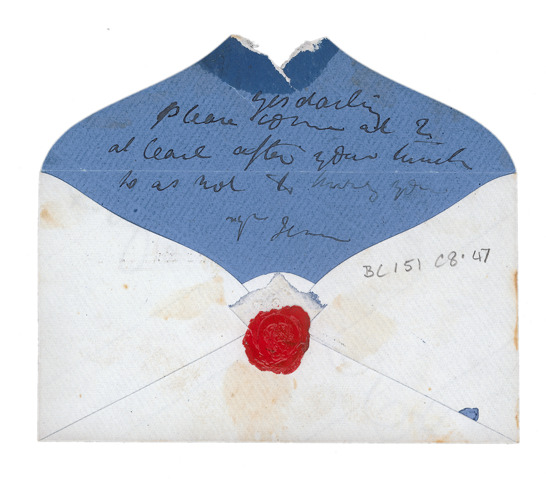 Yes darling
Please come at 2.
at least after your lunch
so as not to hurry you
yr Jennie
BC151 C8.47